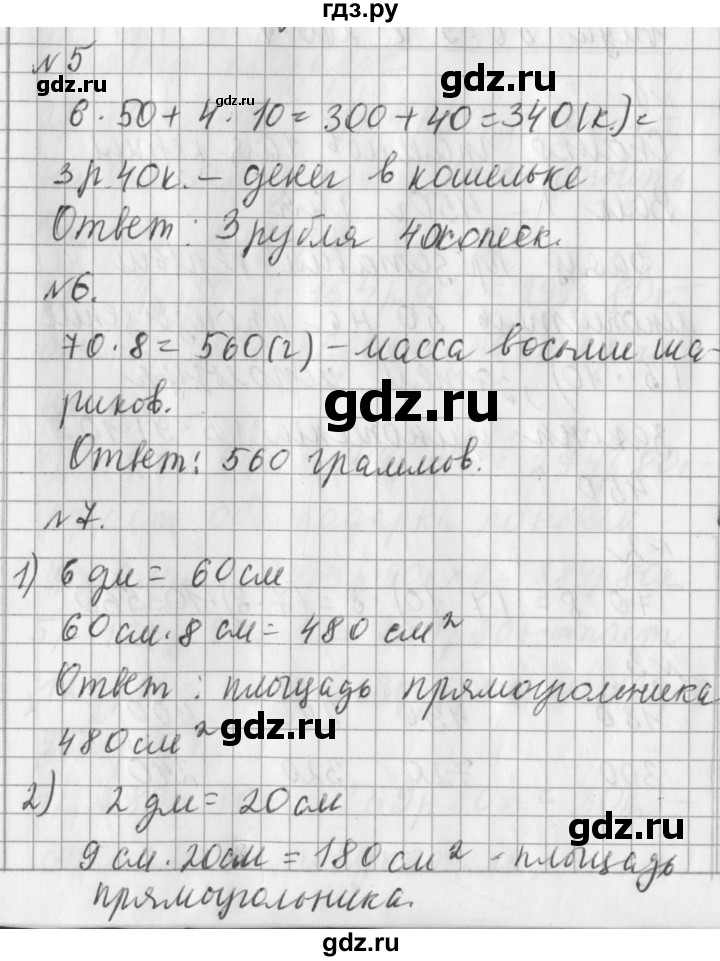 гдз.ру
№5
gdz.ru
gdz.ru
gdz.ru
6·50+4·10=300+40=340(к.)=
3р 40к. – денег в кошельке
Ответ: 3рубля 40копеек.
№6.
70·8=560(г) – масса восьми ша-
риков.
gdz.ru
Ответ: 560 граммов.
№7.
gdz.ru
1) 6дм = 60см
60см·8см=480см²
Ответ: площадь прямоугольника
480см²
gdz.ru
2) 2дм=20см
gdz.ru
9см·20см=180см² - площадь
прямоугольника.
gdz.ru